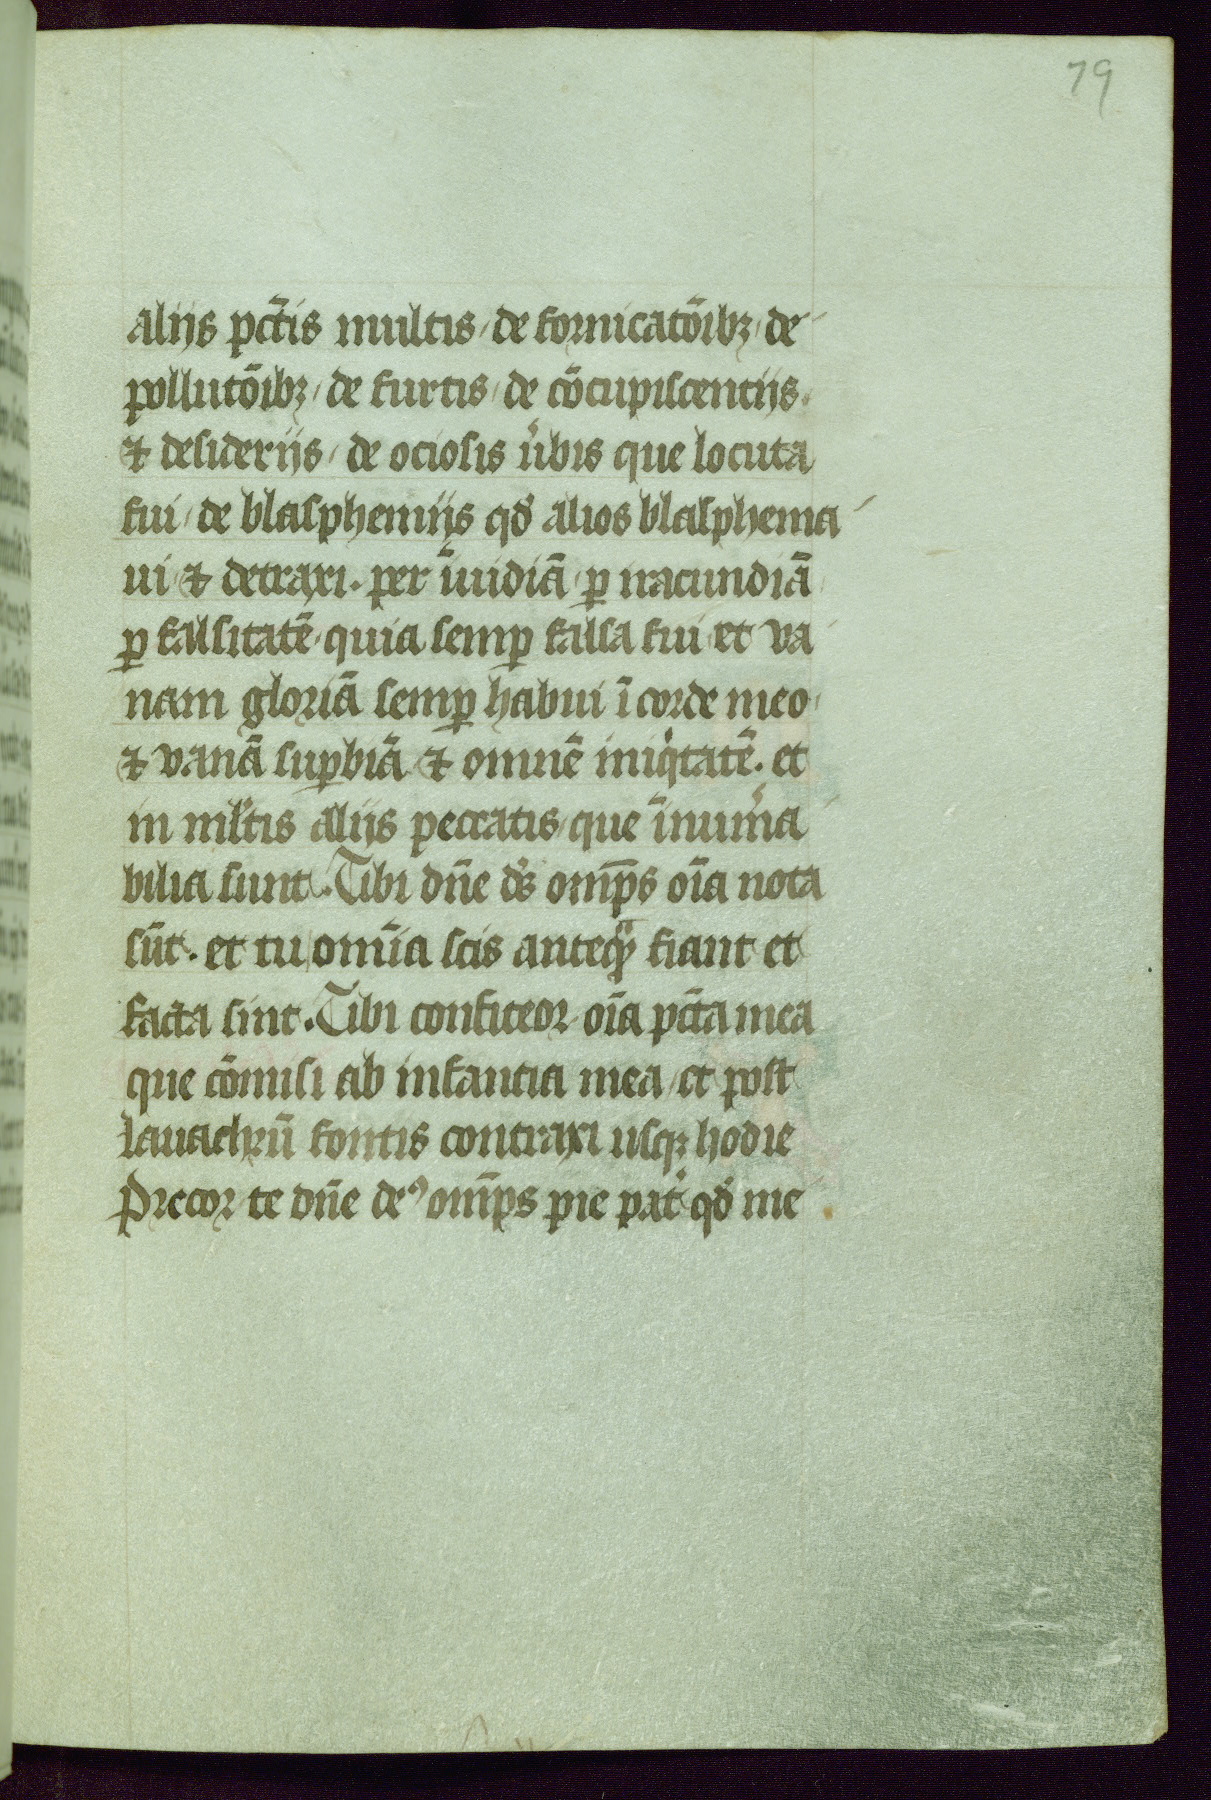 79
alijs pctīs multis / de fornicatōibꝫ / de
pollutōibꝫ / de furtis / de cōcupiscentijs
⁊ desiderijs / de ociosis ũbis que locuta
fui / de blasphemijs qđ alios blasphema
ui ⁊ detraxi . per īuidiā / ꝑ iracundiā
ꝑ falsitatē / quia semꝑ falsa fui et va
nam gloriā semꝑ habui ī corde meo
⁊ vanā suꝑbiā ⁊ omnē iniqͥtatē . et
in ml̃tis alijs peccatis / que īnum̃a
bilia sunt . Tibi dn̄e ds̄ omp̄s oīa nota
sūt . et tu omīa scis anteqͣ fiant et
facta sint . Tibi confiteor oīa pctā mea
que cōmisi ab infantia mea / et post
lauachrū fontis contraxi usqꝫ hodie
Precor te dn̄e deꝰ omp̄s pie pat̃ qđ me